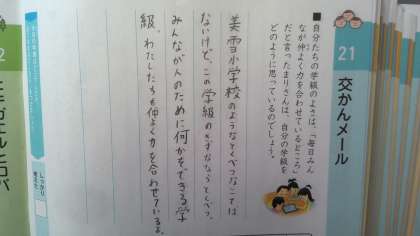 21 交かんメール
■自分たちの学級のよさは、「毎日みん
なが仲よく力を合わせているところ」
だと言ったまりさんは、自分の学級を
どのように思っているのでしょう。
美雪小学校のようなとくべつなことでは
ないけど、この学級のきずなならとくべつ。
みんなが人のために何かをできる学
級。わたしたちも仲よく力を合わせているよ。
しっかり
考えた
ヒキガエルとロバ